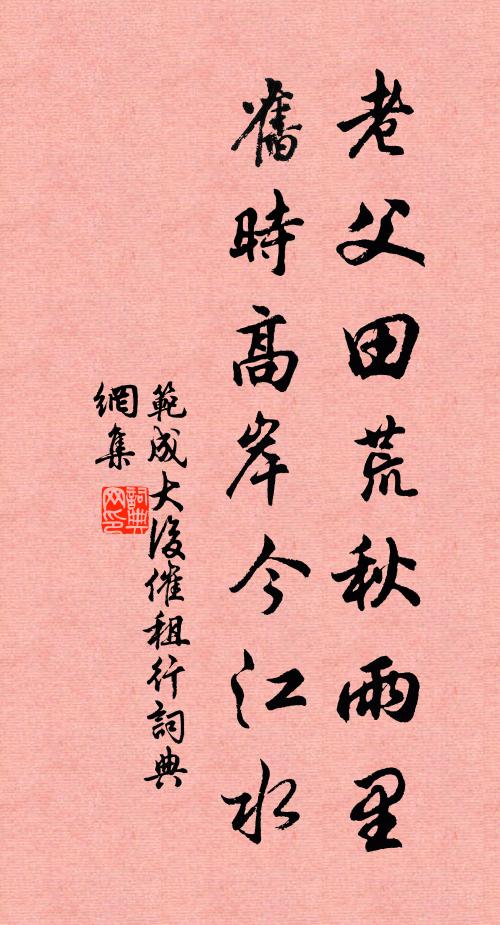 老父田荒秋雨里
舊時高岸今江水
範成大後催租行詞典
網集
詞典网印